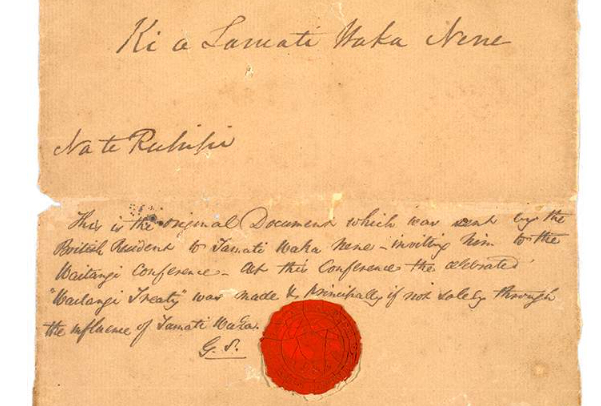 Ki a Tamati Waka Nene
Na te Ruhipi
This is the original Document which was sent by the
British Resident to Tamati Waka Nene - inviting him to the
Waitangi Conference - At this Conference the celebrated
"Waitangi Treaty" was made & principally if not solely through
the influence of Tamati Waka.
G. S.